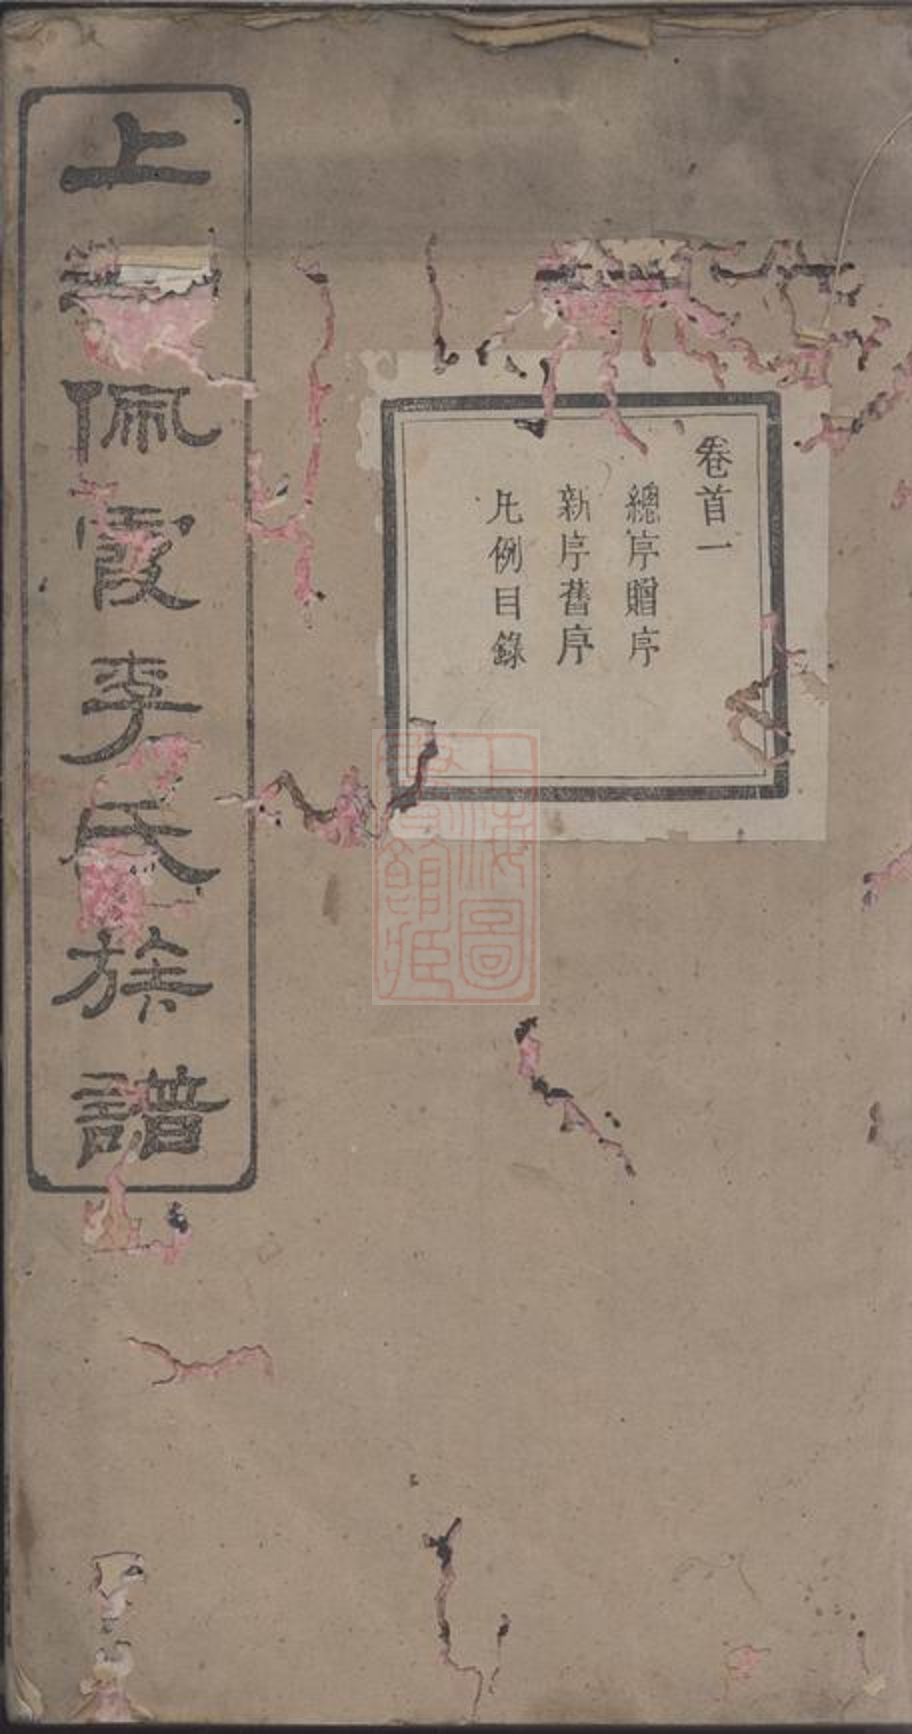 卷首一
總序贈序
新序舊序
凡例目錄
上
佩霞李氏族譜
上海圖書館藏